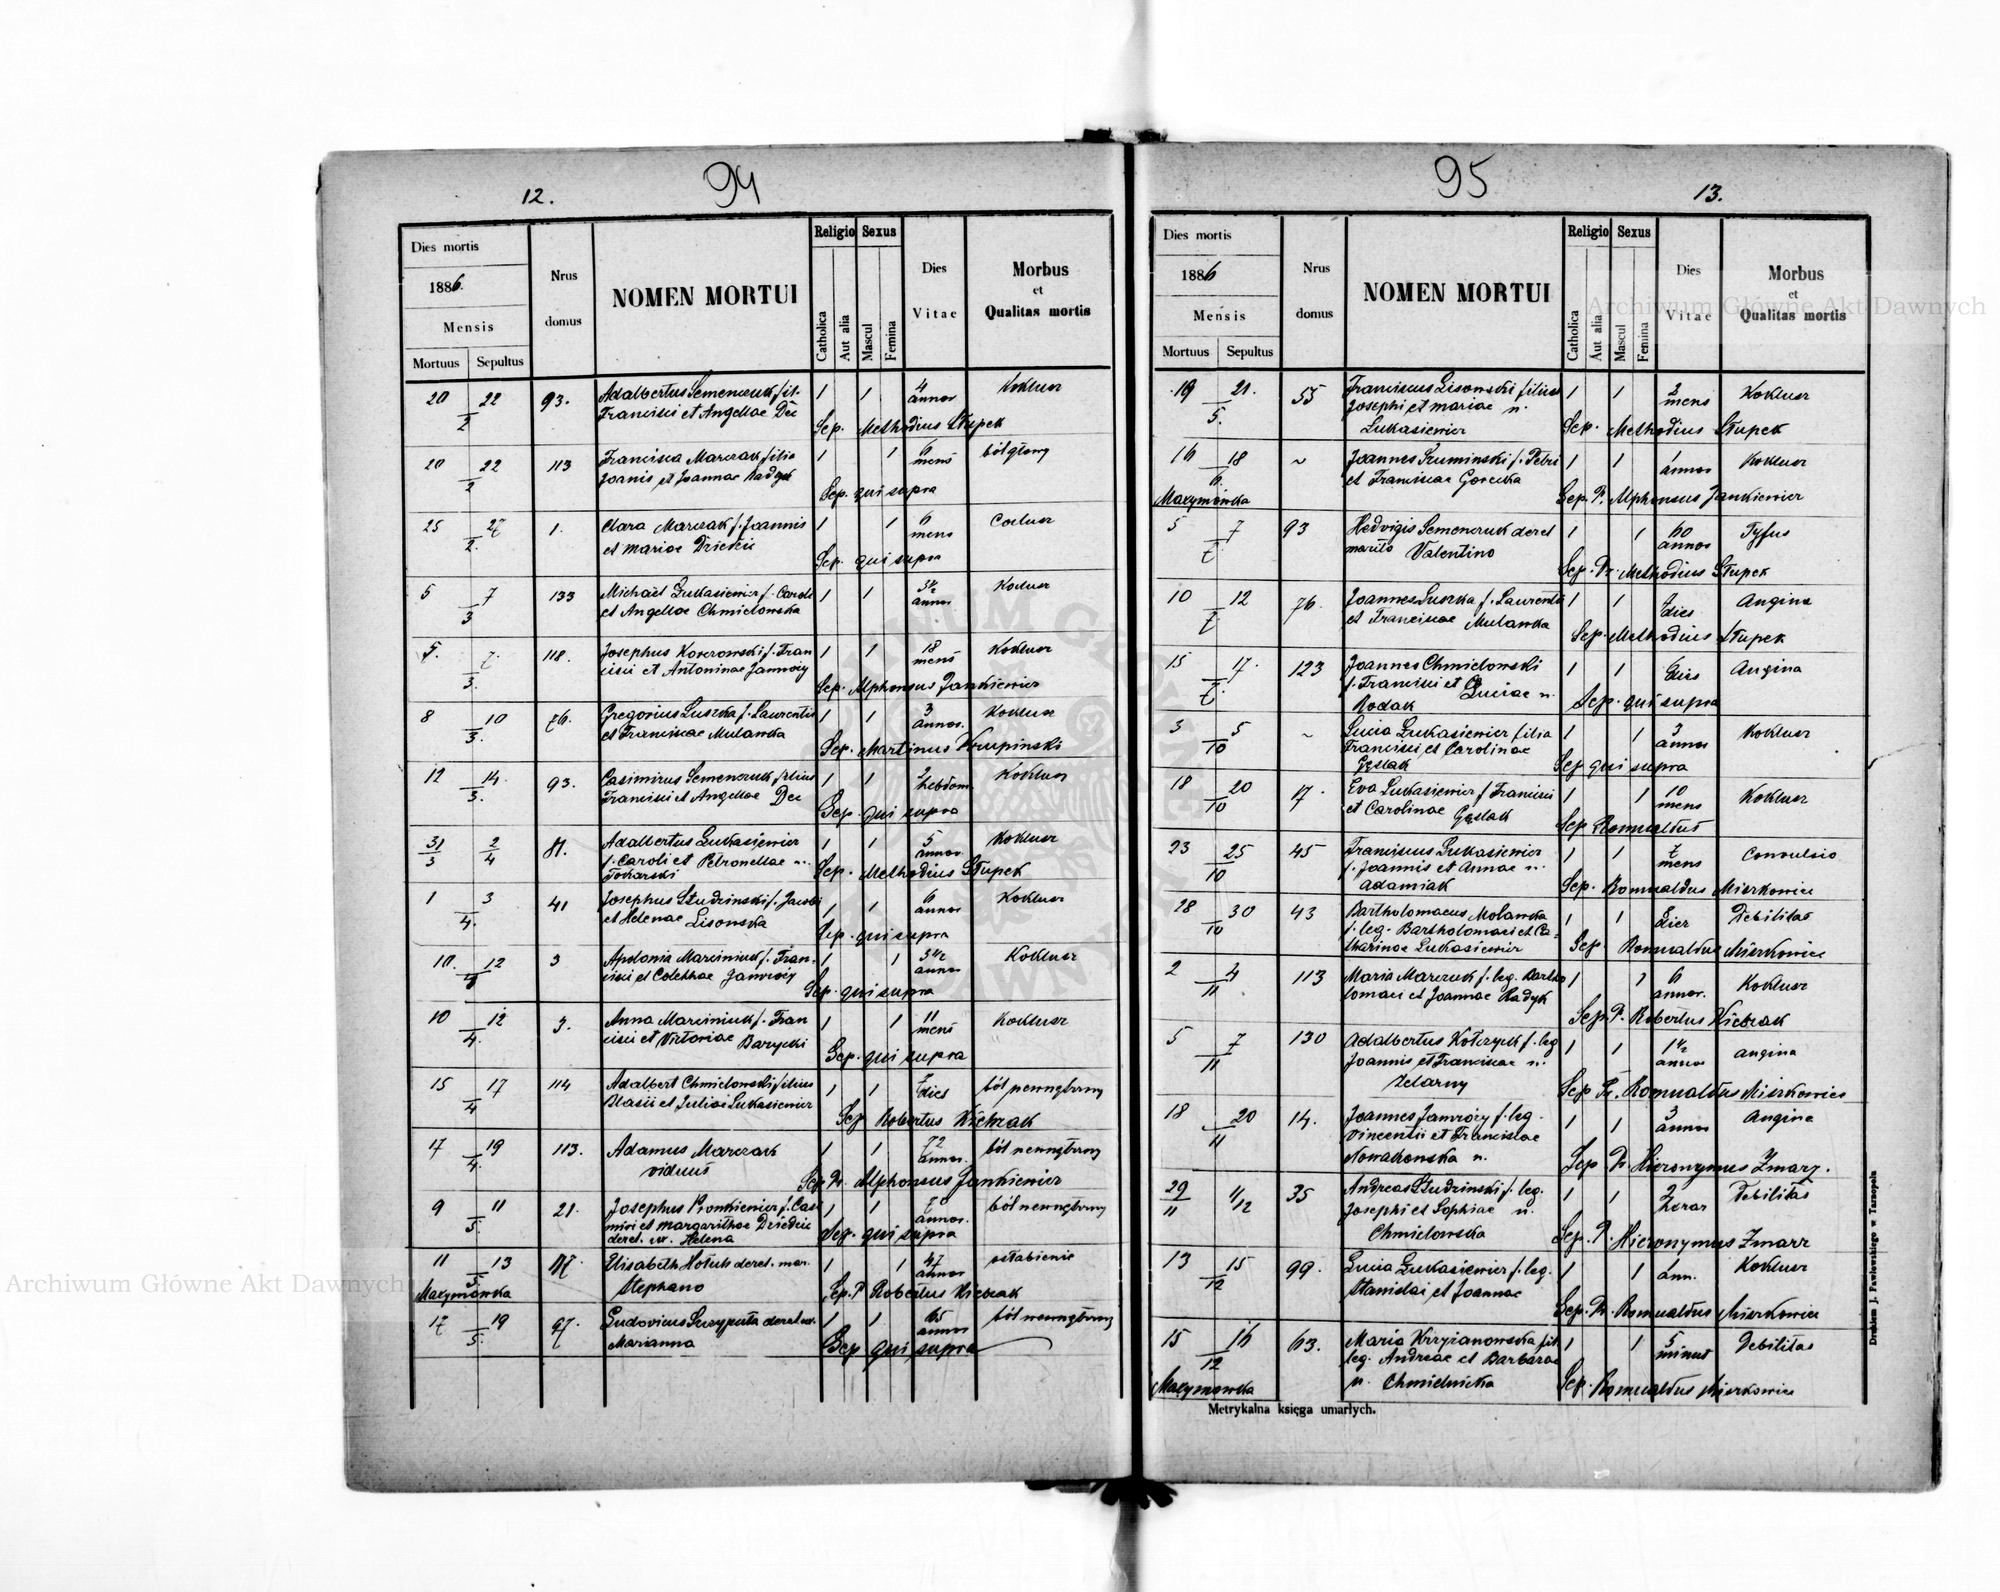 94
12.
Dies mortis
1886.
Mensis
Mortuus Sepultus
Nrus domus
NOMEN MORTUI
Religio
Catholica
Aut alia
Sexus
Mascul
Femina
Dies Vitae
Morbus
et
Qualitas mortis
20 22 93. Adalbertus Semenczuk fil. 1 1 4 Koklusz
2 Francisci et Angellae Dec annor
Sep. Methodius Słupek
20 22 113 Francisca Marczak filia 1 1 6 ból głowy
2 Joanis et Joannae Radyk mens
Sep. qui supra
25 27 1. Clara Marczak f. Joannis 1 1 6 Coclusz
2. et Mariae Dziedzic mens
Sep. qui supra
5 7 133 Michael Łukasiewicz f. Caroli 1 1 3½ Koclusz
3 et Angellae Chmielowska annor
5. 7. 118. Josephus Korczowski f. Fran 1 1 18 Koklusz
3. cisci et Antoninae Jawroży mens
Sep. Alphonsus Jankiewicz
8 10 76. Gregorius Suszka f. Laurentii 1 1 3 Koklusz
3. et Franciscae Mulawka annor.
Sep. Martinus Krupinski
12 14. 93. Casimirus Semenczuk filius 1 1 2 Koklusz
3. Francisci et Angellae Dec hebdom.
Sep. qui supra
31 2 81. Adalbertus Łukasiewicz 1 1 5 Koklusz
3 4 f. Caroli et Petronellae n. annor
Tokarski Sep. Methodius Słupek
1 3 41 Josephus Studzinski f. Jacobi 1 1 6 Koklusz
4. et Helenae Lisowska annor
Sep. qui supra
10. 12 3 Apolonia Marciniuk f. Fran- 1 1 3½ Koklusz
4 cisci et Colethae Jawroży annor
Sep. qui supra
10 12 3. Anna Marciniuk f. Fran 1 1 11 Koklusz
4. cisci et Victoriae Barycki mens
Sep. qui supra
15 17 114 Adalbert Chmielowski filius 1 1 7 ból wewnętrzny
4 Blasii et Juliae Łukasiewicz dies
Sep Robertus Kiebzak
17 19 113. Adamus Marczak 1 1 72 ból wewnętrzny
4. viduus annor.
Sep. Pr. Alphonsus Jankiewicz
9 11 21. Josephus Pionkiewicz f. Casi 1 1 70 ból wewnętrzny
5. miri et Margarithae Dziedzic annor.
derel. ux. Helena Sep. qui supra
11 13 Elisabeth Hołub derel. mar. 1 1 47 osłabienie
5. Stephano annor
Maxymówka Sep. P Robertus Kiebzak
17 19 97. Ludovicus Suzyputa derel. ux. 1 1 65 ból wewnętrzny
5. Marianna annor
Sep qui supra
95
13.
Dies mortis
1886
Mensis
Mortuus Sepultus
Nrus domus
NOMEN MORTUI
Religio
Catholica
Aut alia
Sexus
Mascul
Femina
Dies Vitae
Morbus
et
Qualitas mortis
19 21. 55 Franciscus Lisowski filius 1 1 2 Koklusz
5. Josephi et Mariae n. mens
Łukasiewicz Sep. Methodius Słupek
16 18 ~ Joannes Szuminski f. Petri 1 1 Koklusz
6. et Franciscae Gorecka annor
Maxymówka Sep. P. Alphonsus Jankiewicz
5 7 93 Hedvigis Semenczuk derel 1 1 60 Tyfus
7 marito Valentino annos
Sep. Pr. Methodius Słupek
10 12 76. Joannes Suszka f. Laurentii 1 1 7 Angina
7. et Franciscae Mulawka dies
Sep. Methodius Słupek
15 17. 123 Joannes Chmielowski 1 1 6 Angina
7. f. Francisci et Luciae n. dies
Rodak Sep. qui supra
3 5 ~ Lucia Łukasiewicz filia 1 1 3 Koklusz
10 Francisci et Carolinae annor
Gęslak Sep qui supra
18 20 17. Eva Łukasiewicz f Francisci 1 1 10 Koklusz
10 et Carolinae Gęslak mens
Sep Romualdus
23 25 45 Franciscus Łukasiewicz 1 1 7 Convulsio
10 f. Joannis et Annae n. mens
Adamiak Sep. Romualdus Mierkowicz
28 30 43 Bartholomaeus Molawka 1 1 8 Debilitas
10 f. leg. Bartholomaei et Ca- dier
tharinae Łukasiewicz Sep Romualdus Mierkowicz
2 4 113 Maria Marczuk f. leg. Bartho 1 1 6 Koklusz
11 lomaei et Joannae Radyk annor.
Sep. P. Robertus Kiebzak
5 7 130 Adalbertus Kołczyk f. leg 1 1 1½ angina
11 Joannis et Franciscae n. annor
Zelarny Sep Pr. Romualdus Mierkowicz
18 20 14. Joannes Jawroży f. leg. 1 1 3 Angina
11 Vincentii et Franciscae annos
Nowakowska n. Sep Pr. Hieronymus Zmarz.
29 1/12 35 Andreas Studzinski f. leg. 1 1 2 Debilitas
11 Josephi et Sophiae n. horas
Chmielowska Sep. P. Hieronymus Zmarz
13 15 99. Lucia Łukasiewicz f. leg. 1 1 ann. Koklusz
12 Stanislai et Joannae
Sep. Pr. Romualdus Mierkowicz
15 16 63. Maria Krzyżanowska fil. 1 1 5 Debilitas
12 leg. Andreae et Barbarae minut
Maxymowka n. Chmielnicka Sep. Romualdus Mierkowicz
Metrykalna księga umarłych.
Drukiem J. Pawłowskiego w Tarnopolu
Archiwum Główne Akt Dawnych
Archiwum Główne Akt Dawnych